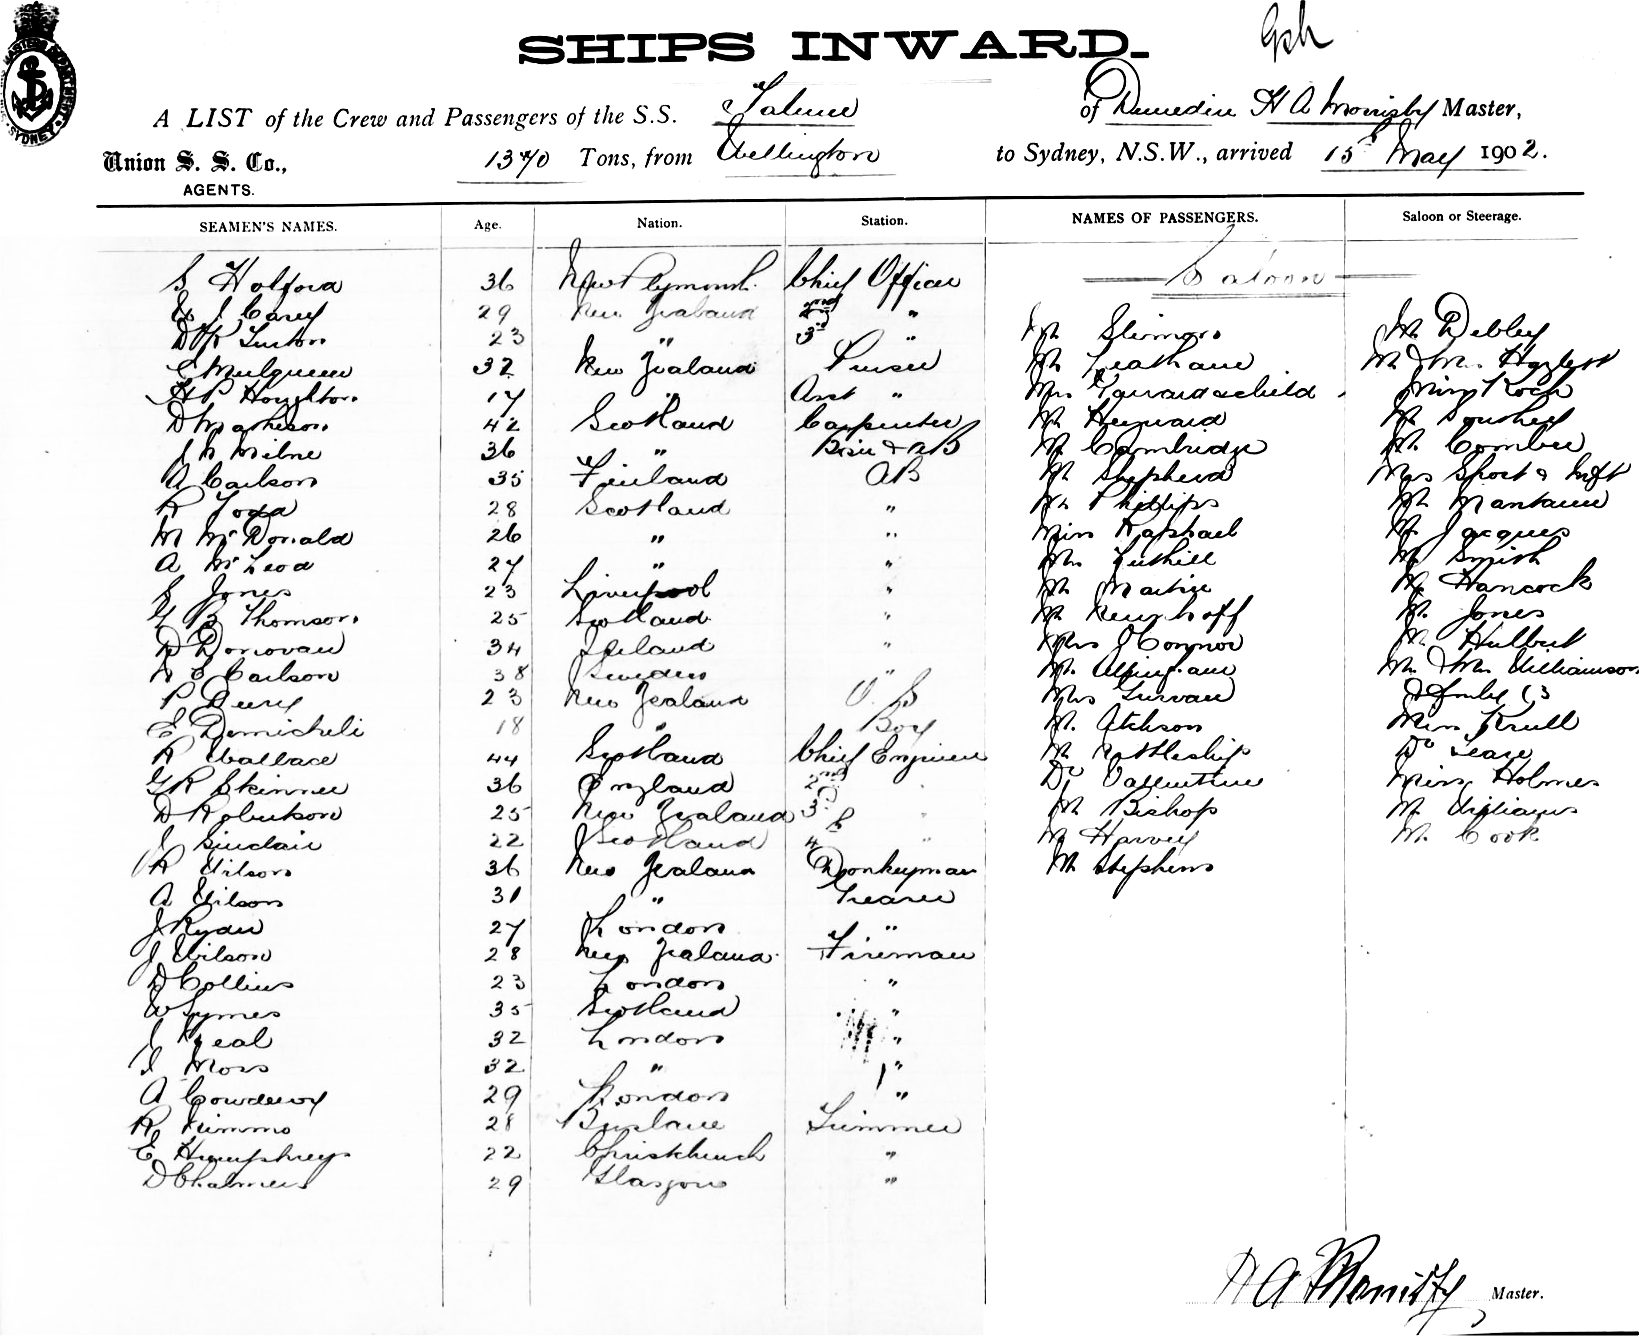 SHIPS INWARD.
A LIST of the Crew and Passengers of the S.S. Talune of Dunedin H A Morrisby Master,
Union S. S. Co., 1370 Tons, from Wellington to Sydney, N.S.W., arrived 15 May 1902.
AGENTS.
SEAMEN'S NAMES. Age. Nation. Station. NAMES OF PASSENGERS. Saloon or Steerage.
Saloon
Holford 36 New Plymouth Chief Officer
J Carey 29 New Zealand 2nd "
23 " 3rd "
E Mulqueen 32 New Zealand Purser
H P Houghton 17 " Asst "
D Matheson 42 Scotland Carpenter
J Milne 36 " & AB
A Carlson 35 Finland AB
R 28 Scotland "
M McDonald 26 " "
A McLeod 27 " "
Jones 23 Liverpool "
G B Thomson 25 Scotland "
D Donovan 34 Ireland "
E Carlson 38 Sweden "
P 23 New Zealand O S
E Demicheli 18 " Boy
R Wallace 44 Scotland Chief Engineer
G R Skinner 36 England 2nd "
D Robertson 25 New Zealand 3rd "
J Sinclair 22 Scotland 4 "
R Wilson 36 New Zealand Donkeyman
A Wilson 31 " Greaser
J Ryan 27 London "
J Wilson 28 New Zealand Fireman
D Collins 23 London "
W Symes 35 Scotland "
J 32 London "
J Moss 32 " "
A Cowderoy 29 London "
R Nimmo 28 Brisbane Trimmer
E Humphreys 22 Christchurch "
D Chalmers 29 Glasgow "
Mr
Mr Leatham
Mrs
Mr Heyward
Mr Cambridge
Mr Shepherd
Mr Phillips
Miss Raphael
Mrs Tuthill
Mr Martin
Mr
Mrs O'Connor
Mr
Mrs
Mr Atchison
Mr Nettleship
Dr Vallentine
Mr Bishop
Mr Harvey
Mr Stephens
Mr Debley
Mr & Mrs
Miss Koch
Mr
Mr Comber
Mrs Short &
Mr
Mr Jacques
Mr Smith
Mr Hancock
Mr Jones
Mr Hulbert
Mr & Mrs Williamson
& family (3
Miss Krull
Dr
Miss Holmes
Mr Williams
Mr Cook
H A Morrisby Master.